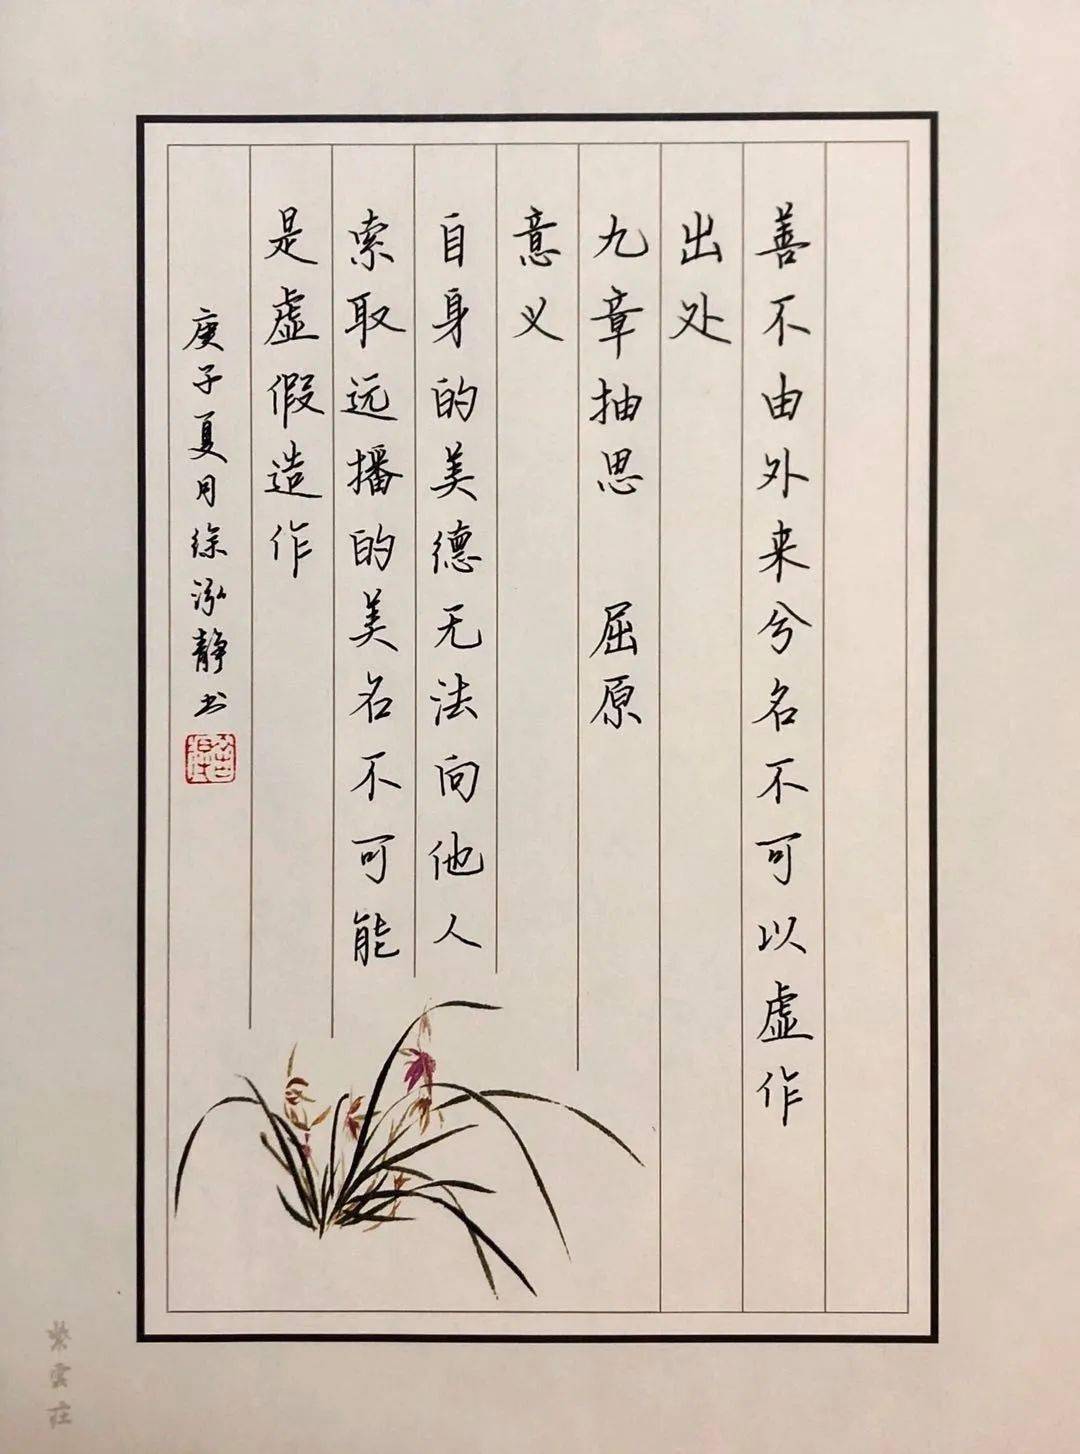 善不由外来兮名不可以虚作
出处
九章抽思 屈原
意义
自身的美德无法向他人
索取远播的美名不可能
是虚假造作
庚子夏月徐泓静书
紫雲莊